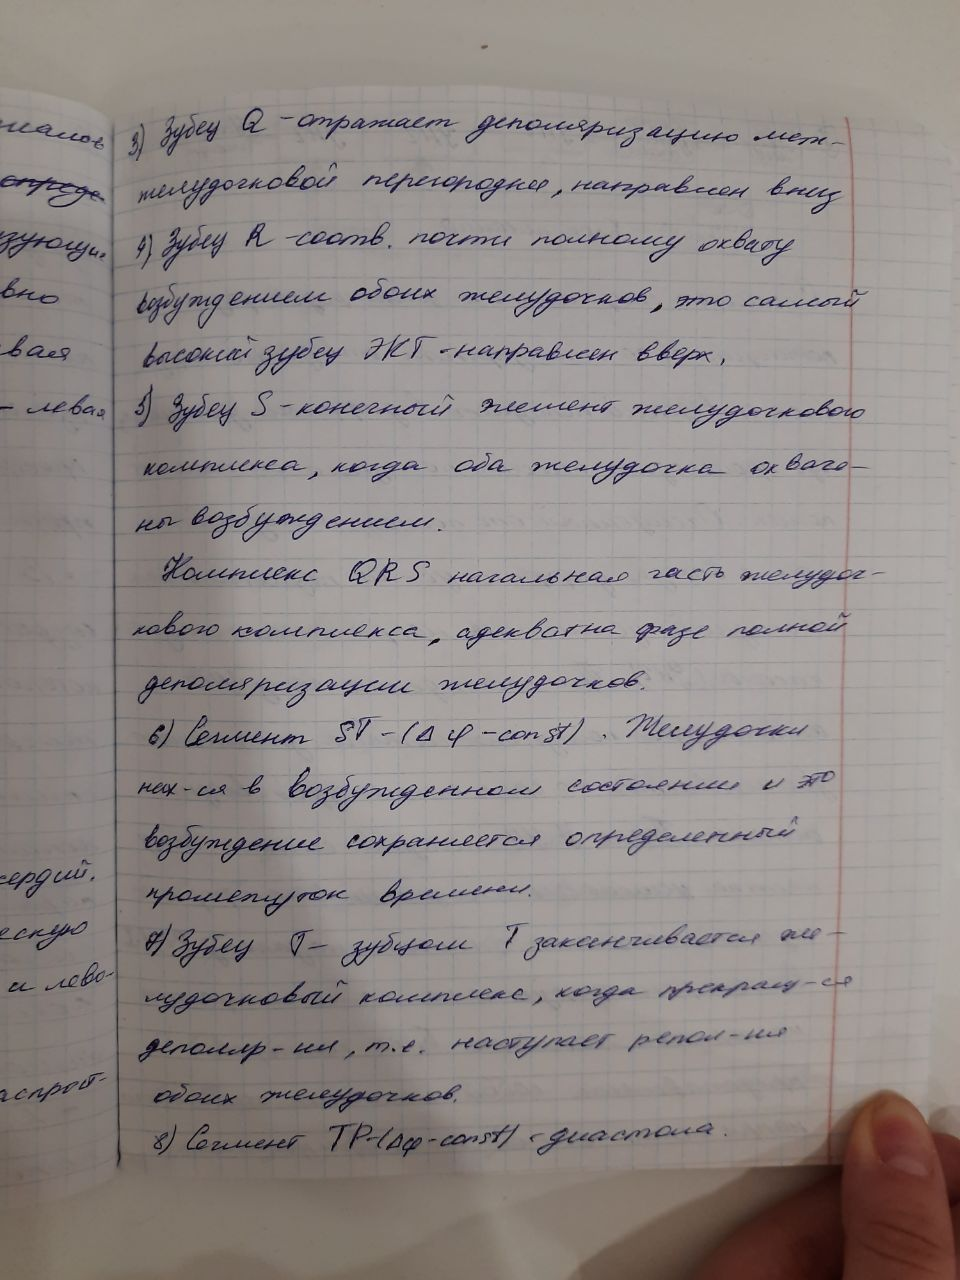 3) Зубец Q - отражает деполяризацию меж-
желудочковой перегородки, направлен вниз
4) Зубец R - соотв. почти полному охвату
возбуждением обоих желудочков, это самый
высокий зубец ЭКГ - направлен вверх.
5) Зубец S - конечный элемент желудочкового
комплекса, когда оба желудочка охваче-
ны возбуждением.
Комплекс QRS начальная часть желудоч-
кового комплекса, адекватна фазе полной
деполяризации желудочков.
6) Сегмент ST - (Δφ - const). Желудочки
нах-ся в возбужденном состоянии и это
возбуждение сохраняется определенный
промежуток времени.
7) Зубец T - зубцом T заканчивается же-
лудочковый комплекс, когда прекращ-ся
деполяр-ия, т.е. наступает репол-ия
обоих желудочков.
8) Сегмент TP - (Δφ - const) - диастола.
вно
вая
- левая
ердий.
ескую
и лево-